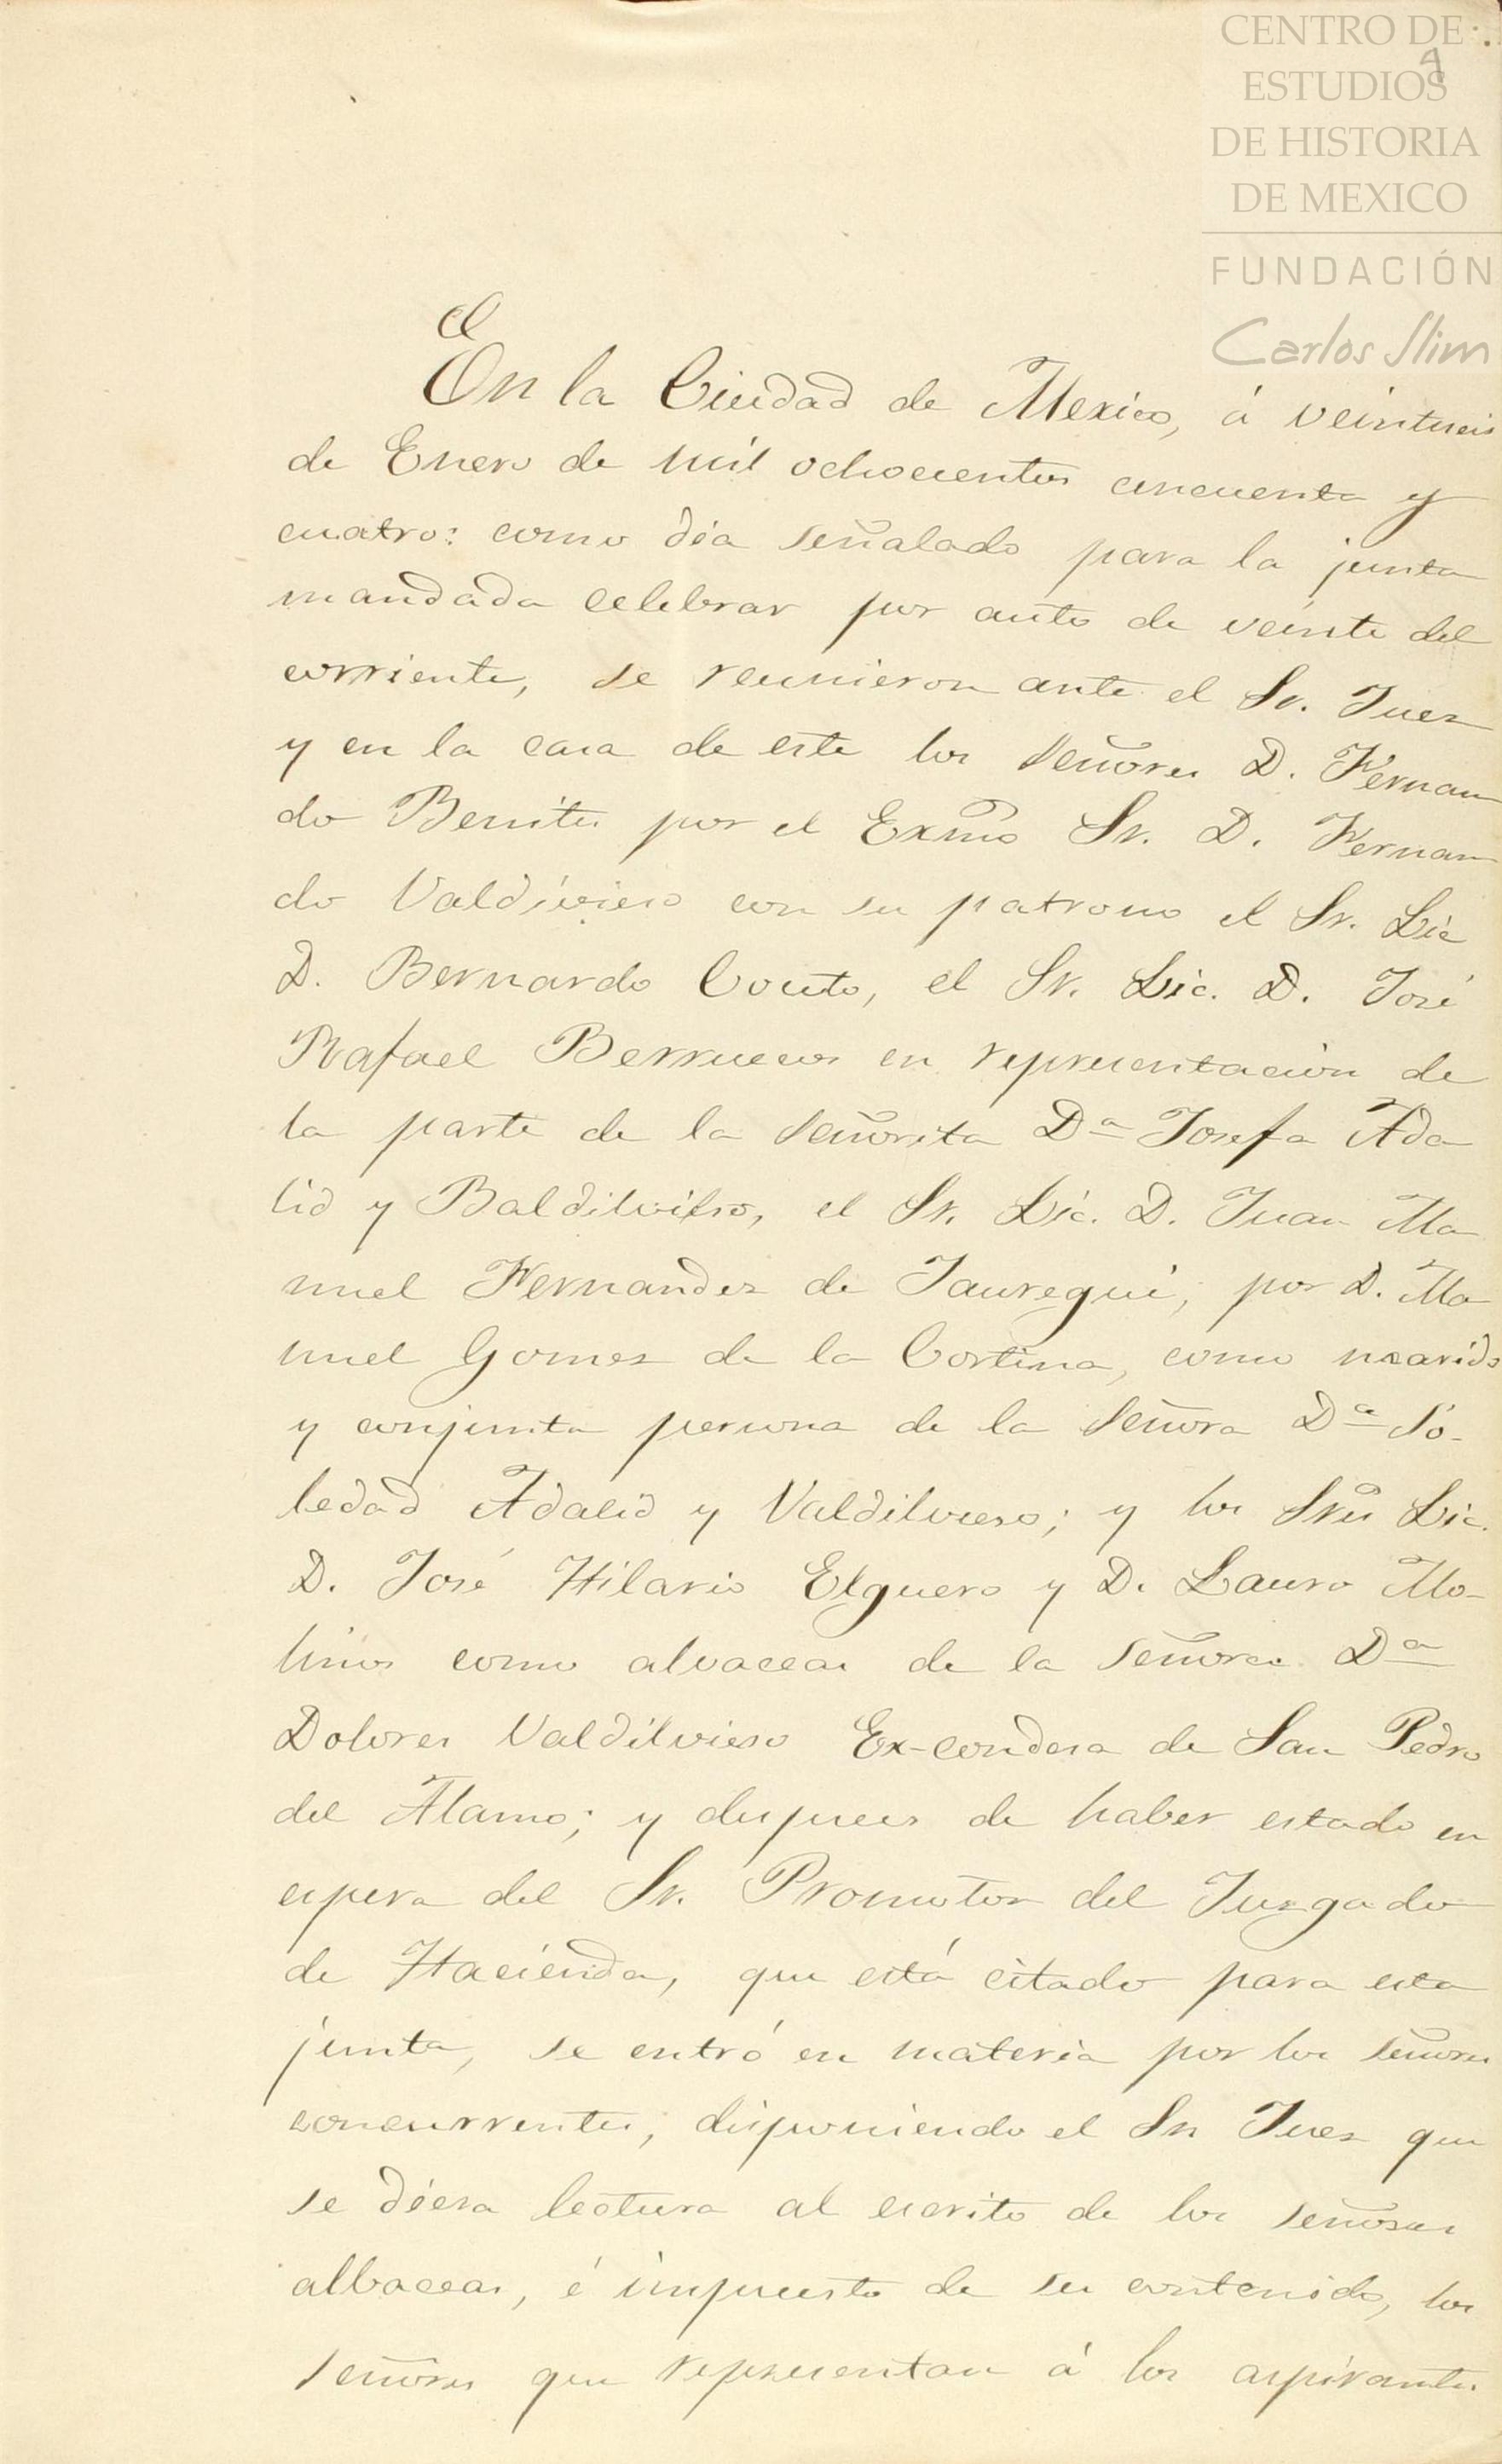 CENTRO DE
ESTUDIOS
DE HISTORIA
DE MEXICO
FUNDACIÓN
Carlos Slim
4
En la Ciudad de Mexico, á veintiseis
de Enero de mil ochocientos cincuenta y
cuatro: como dia señalado para la junta
mandada celebrar por auto de veinte del
corriente, se reunieron ante el Sr. Juez
y en la casa de este los señores D. Fernan
do Benites por el Exmo Sr. D. Fernan
do Valdivieso con su patrono el Sr. Lic
D. Bernardo Couto, el Sr. Lic. D. José
Rafael Berruecos en representacion de
la parte de la señorita Da Josefa Ada
lid y Baldilvilso, el Sr. Lic. D. Juan Ma
nuel Fernandez de Jauregui, por D. Ma
nuel Gomez de la Cortina, como marido
y conjunta persona de la señora Da So-
ledad Adalid y Valdilvieso; y los Sres Lic.
D. José Hilario Elguero y D. Lauro Mo-
linos como alvaceas de la señora Da
Dolores Valdilvieso Ex-condesa de San Pedro
del Alamo; y despues de haber estado en
espera del Sr. Promotor del Juzgado
de Hacienda, que está citado para esta
junta, se entró en materia por los señores
concurrentes, disponiendo el Sr Juez que
se diera lectura al escrito de los señores
albaceas, é impuesto de su contenido, los
señores que representan á los aspirantes